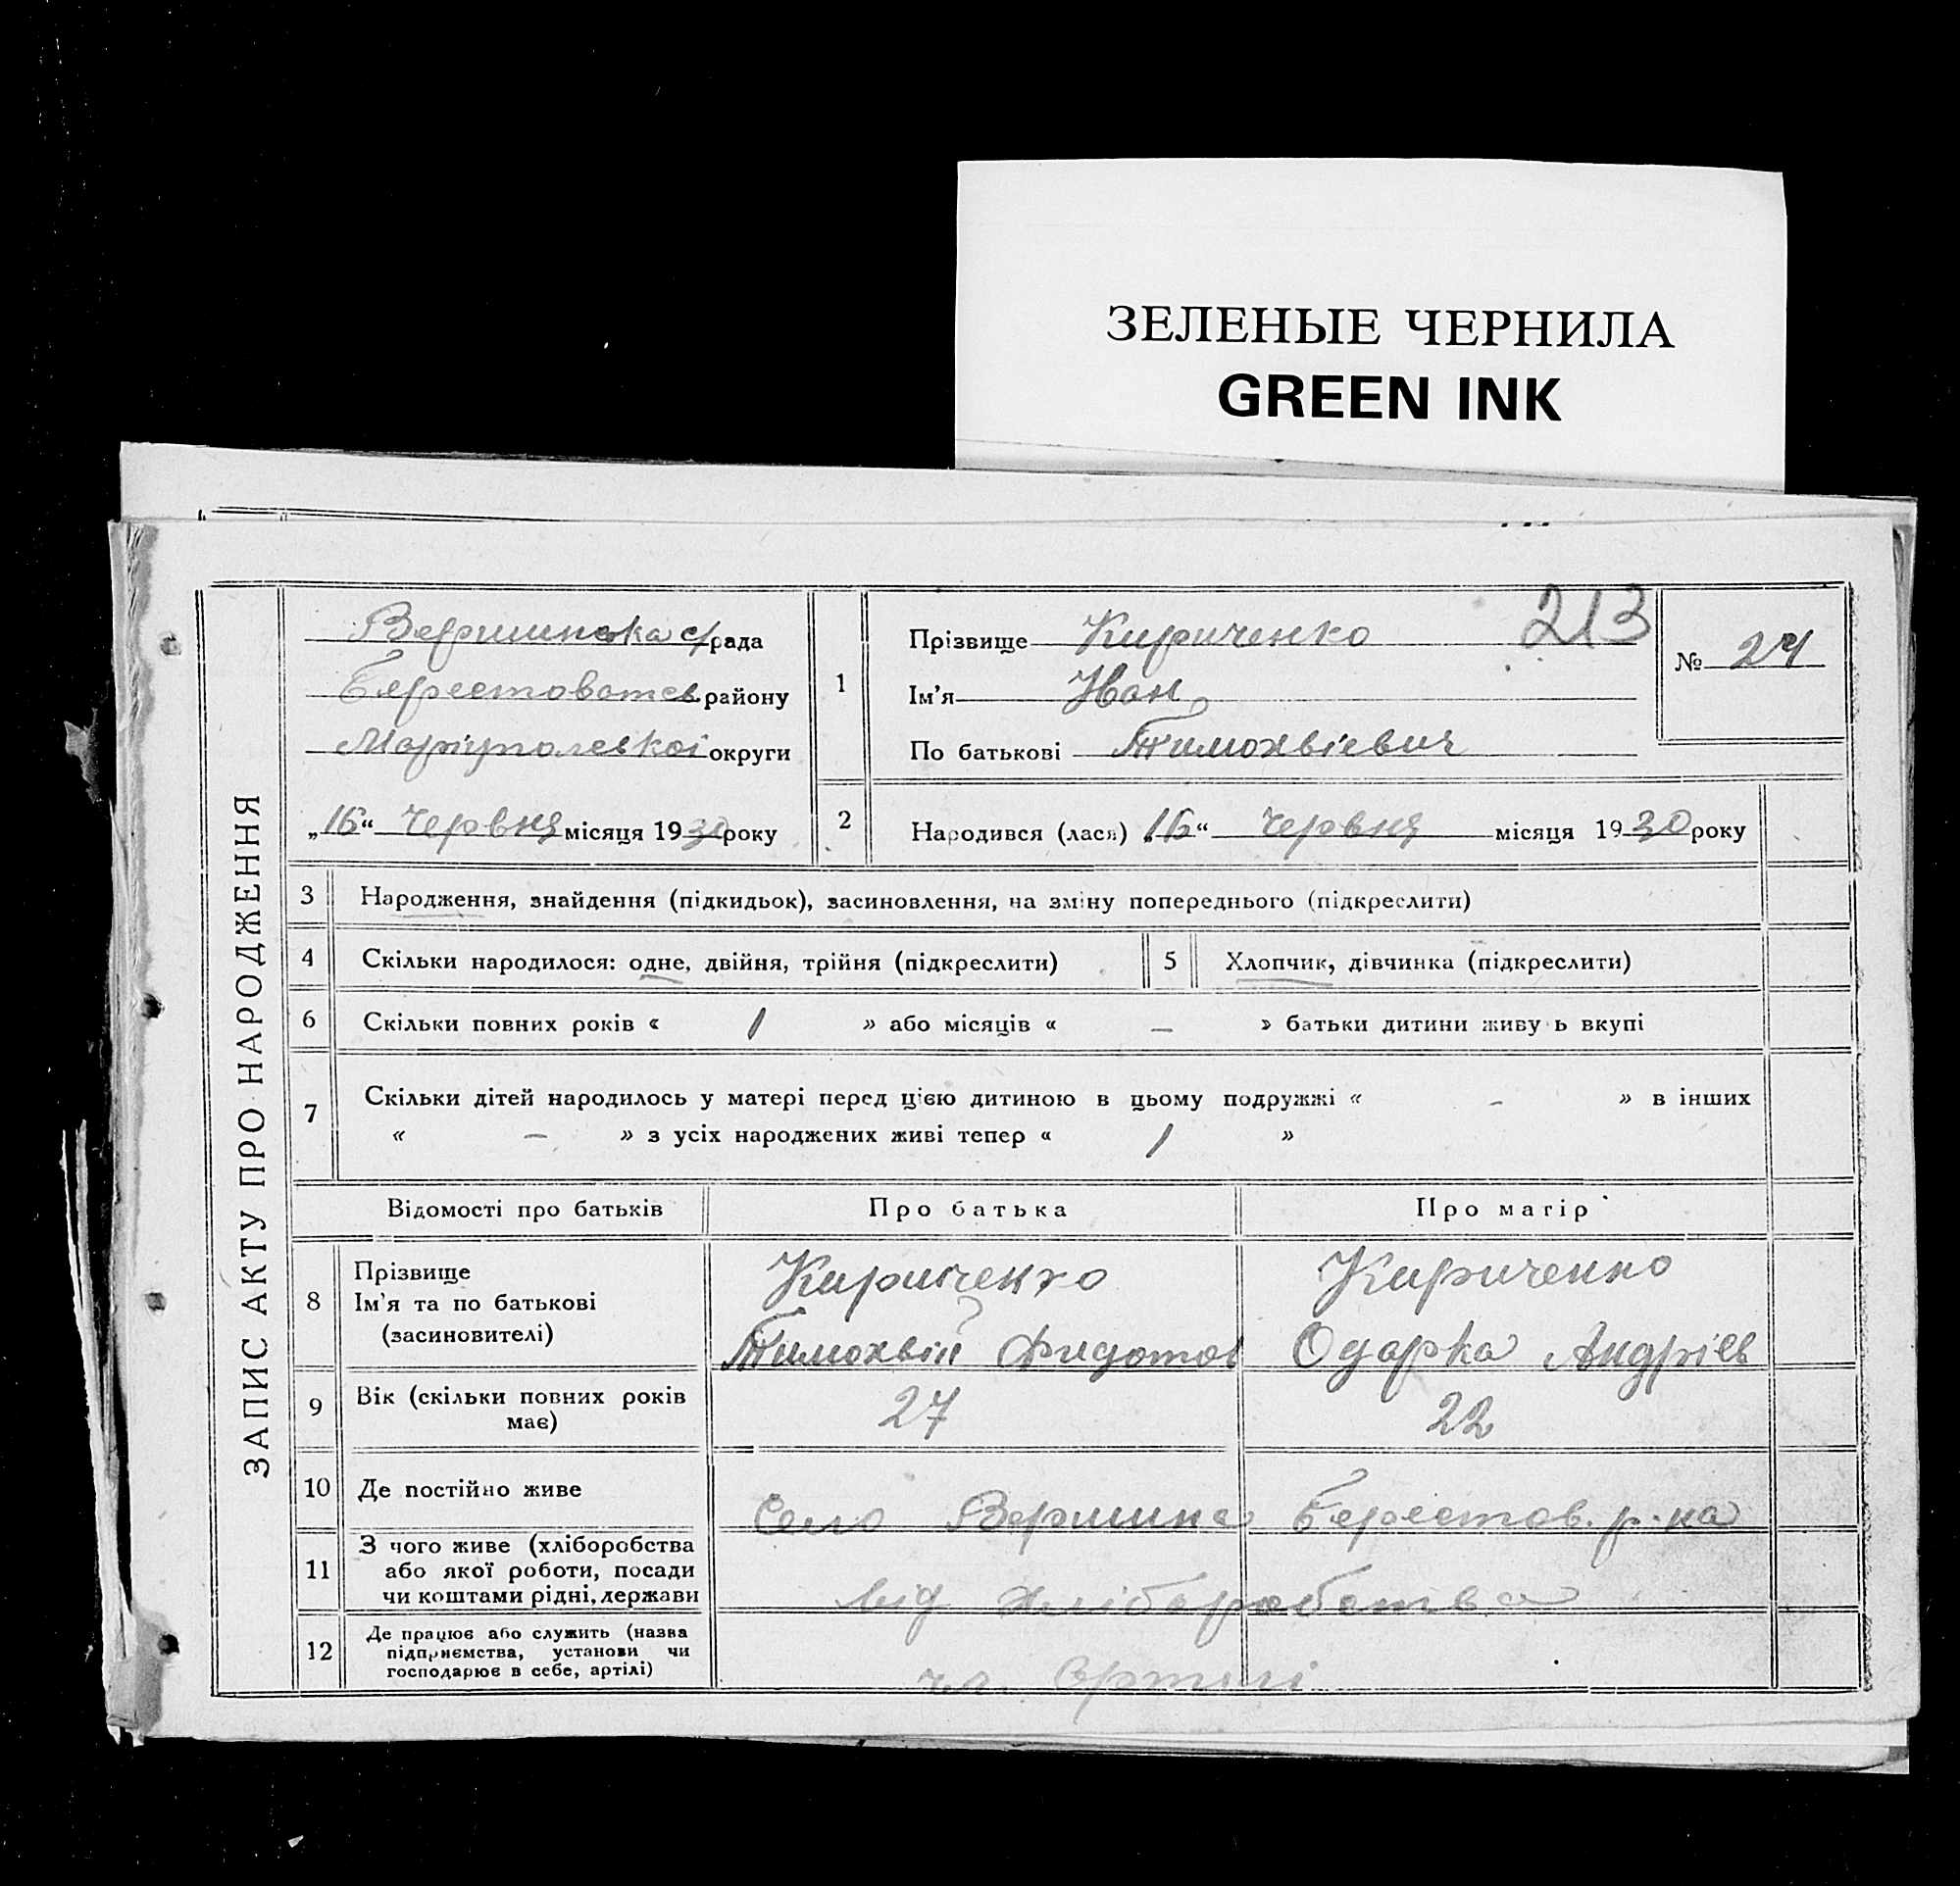 ЗЕЛЕНЫЕ ЧЕРНИЛА
GREEN INK
ЗАПИС АКТУ ПРО НАРОДЖЕННЯ
Вершинська с/рада
Берестоватсв району
Маріупалевкоі округи
„16“ Червня місяця 1930 року
1
Прізвище Кириченко
213
Ім'я Иван
По батькові Тимохвіевич
№ 24
2
Народився (лася) „16“ Червня місяця 1930 року
3 Народження, знайдення (підкидьок), засиновлення, на зміну попереднього (підкреслити)
4 Скільки народилося: одне, двійня, трійня (підкреслити) 5 Хлопчик, дівчинка (підкреслити)
6 Скільки повних років « 1 » або місяців « — » батьки дитини живу ь вкупі
7 Скільки дітей народилось у матері перед цією дитиною в цьому подружжі « – » в інших
« — » з усіх народжених живі тепер « 1 »
Відомості про батьків Про батька Про матір
8 Прізвище
Ім'я та по батькові
(засиновителі)
Кириченко Кириченко
Тимохвій Фидотов Одарка Андріев
9 Вік (скільки повних років має) 27 22
10 Де постійно живе Село Вершина Берестов. р-на
11 З чого живе (хліборобства
або якої роботи, посади
чи коштами рідні, держави
від хліборобства
12 Де працює або служить (назва
підприємства, установи чи
господарює в себе, артілі)
чл. Артілі